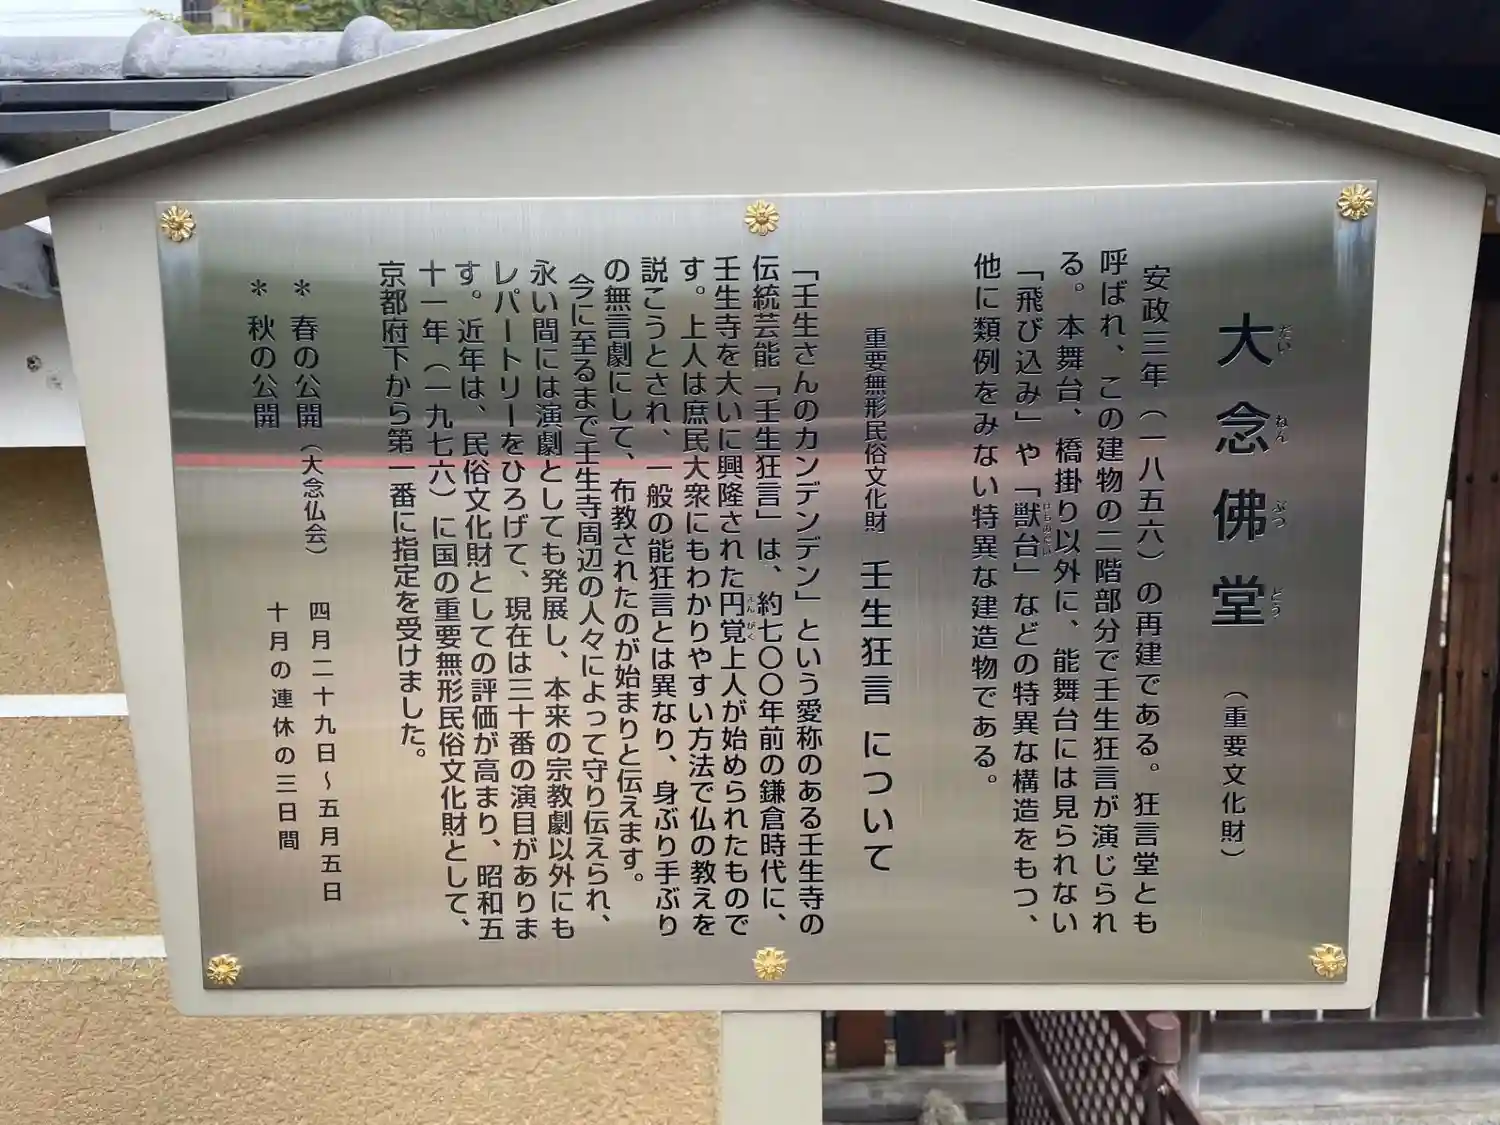 大念佛堂（重要文化財）
だいねんぶつどう
安政三年（一八五六）の再建である。狂言堂とも
呼ばれ、この建物の二階部分で壬生狂言が演じられ
る。本舞台、橋掛り以外に、能舞台には見られない
「飛び込み」や「獣台」などの特異な構造をもつ、
けものだい
他に類例をみない特異な建造物である。
重要無形民俗文化財 壬生狂言 について
「壬生さんのカンデンデン」という愛称のある壬生寺の
伝統芸能「壬生狂言」は、約七〇〇年前の鎌倉時代に、
壬生寺を大いに興隆された円覚上人が始められたもので
えんがく
す。上人は庶民大衆にもわかりやすい方法で仏の教えを
説こうとされ、一般の能狂言とは異なり、身ぶり手ぶり
の無言劇にして、布教されたのが始まりと伝えます。
今に至るまで壬生寺周辺の人々によって守り伝えられ、
永い間には演劇としても発展し、本来の宗教劇以外にも
レパートリーをひろげて、現在は三十番の演目がありま
す。近年は、民俗文化財としての評価が高まり、昭和五
十一年（一九七六）に国の重要無形民俗文化財として、
京都府下から第一番に指定を受けました。
＊ 春の公開（大念仏会） 四月二十九日～五月五日
＊ 秋の公開 十月の連休の三日間